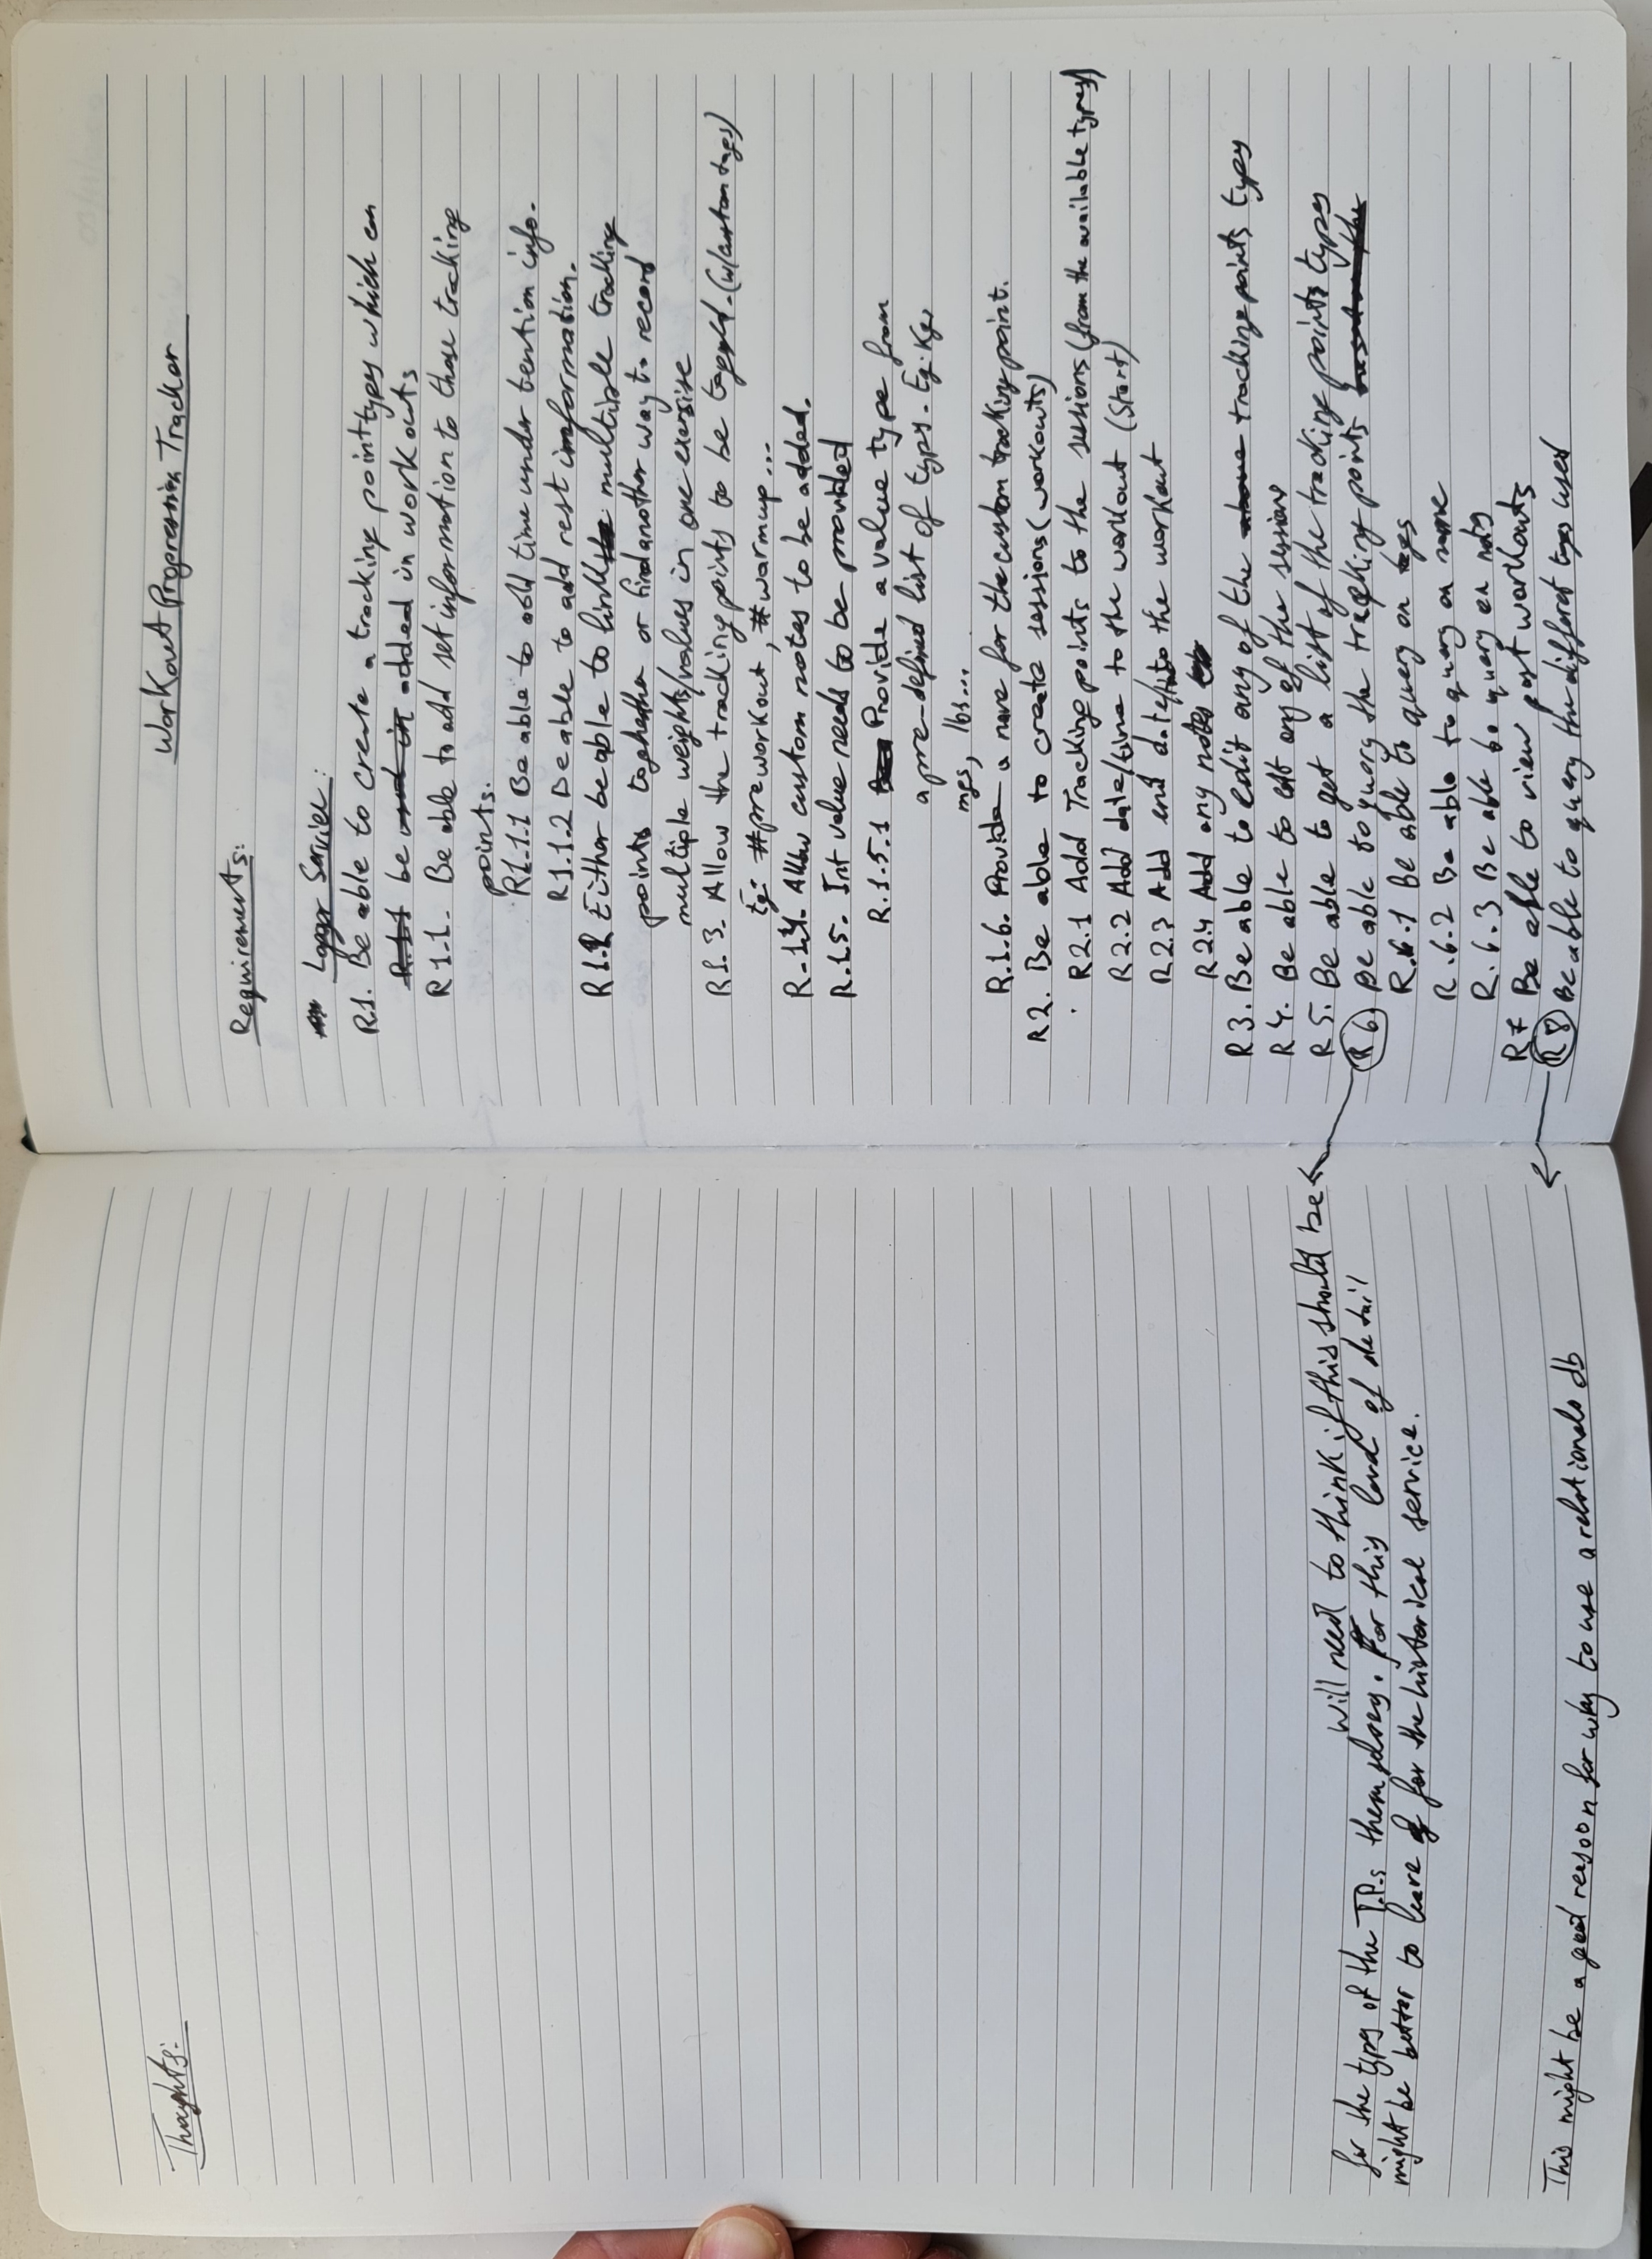 Thoughts:
will need to think if this should be
for the types of the T.P.s themselves. For this level of detail
might be better to leave for the historical service.
This might be a good reesoon for why to use a relationals db
Workout Progression Tracker
Requirements:
Logger Service:
R1. Be able to create a tracking point types which can
R.1.1 be used in added in workouts
R1.1. Be able to add set information to those tracking
points.
R1.1.1 Be able to add time under tention info.
R1.1.2 Be able to add rest imformation.
R1.2 Either be able to link the multiple tracking
points toghether or find another way to record
multiple weights/values in one exersise
R1.3. Allow the tracking points to be tagged. (w/custom tags)
Eg: #preworkout, #warmup...
R.1.4. Allow custom notes to be added.
R.1.5. Int value needs to be provided
R.1.5.1 Provide a value type from
a pre-defined list of types. Eg: Kg,
mgs, lbs...
R.1.6. Provide a name for the custom tracking point.
R2. Be able to create sessions (workouts)
R2.1 Add Tracking points to the sessions (from the available types)
R2.2 Add date/time to the workout (Start)
R2.3 Add end date/ to the workout
R2.4 Add any notes
R3. Be able to edit any of the above tracking points types
R4. Be able to edit any of the sessions
R5. Be able to get a list of the tracking points types
R6. Be able to query the tracking points based on the
R.6.1 Be able to query on tags
R.6.2 Be able to query on name
R.6.3 Be able to query on notes
R7 Be able to view past workouts
R8 Be able to query the differet tags used